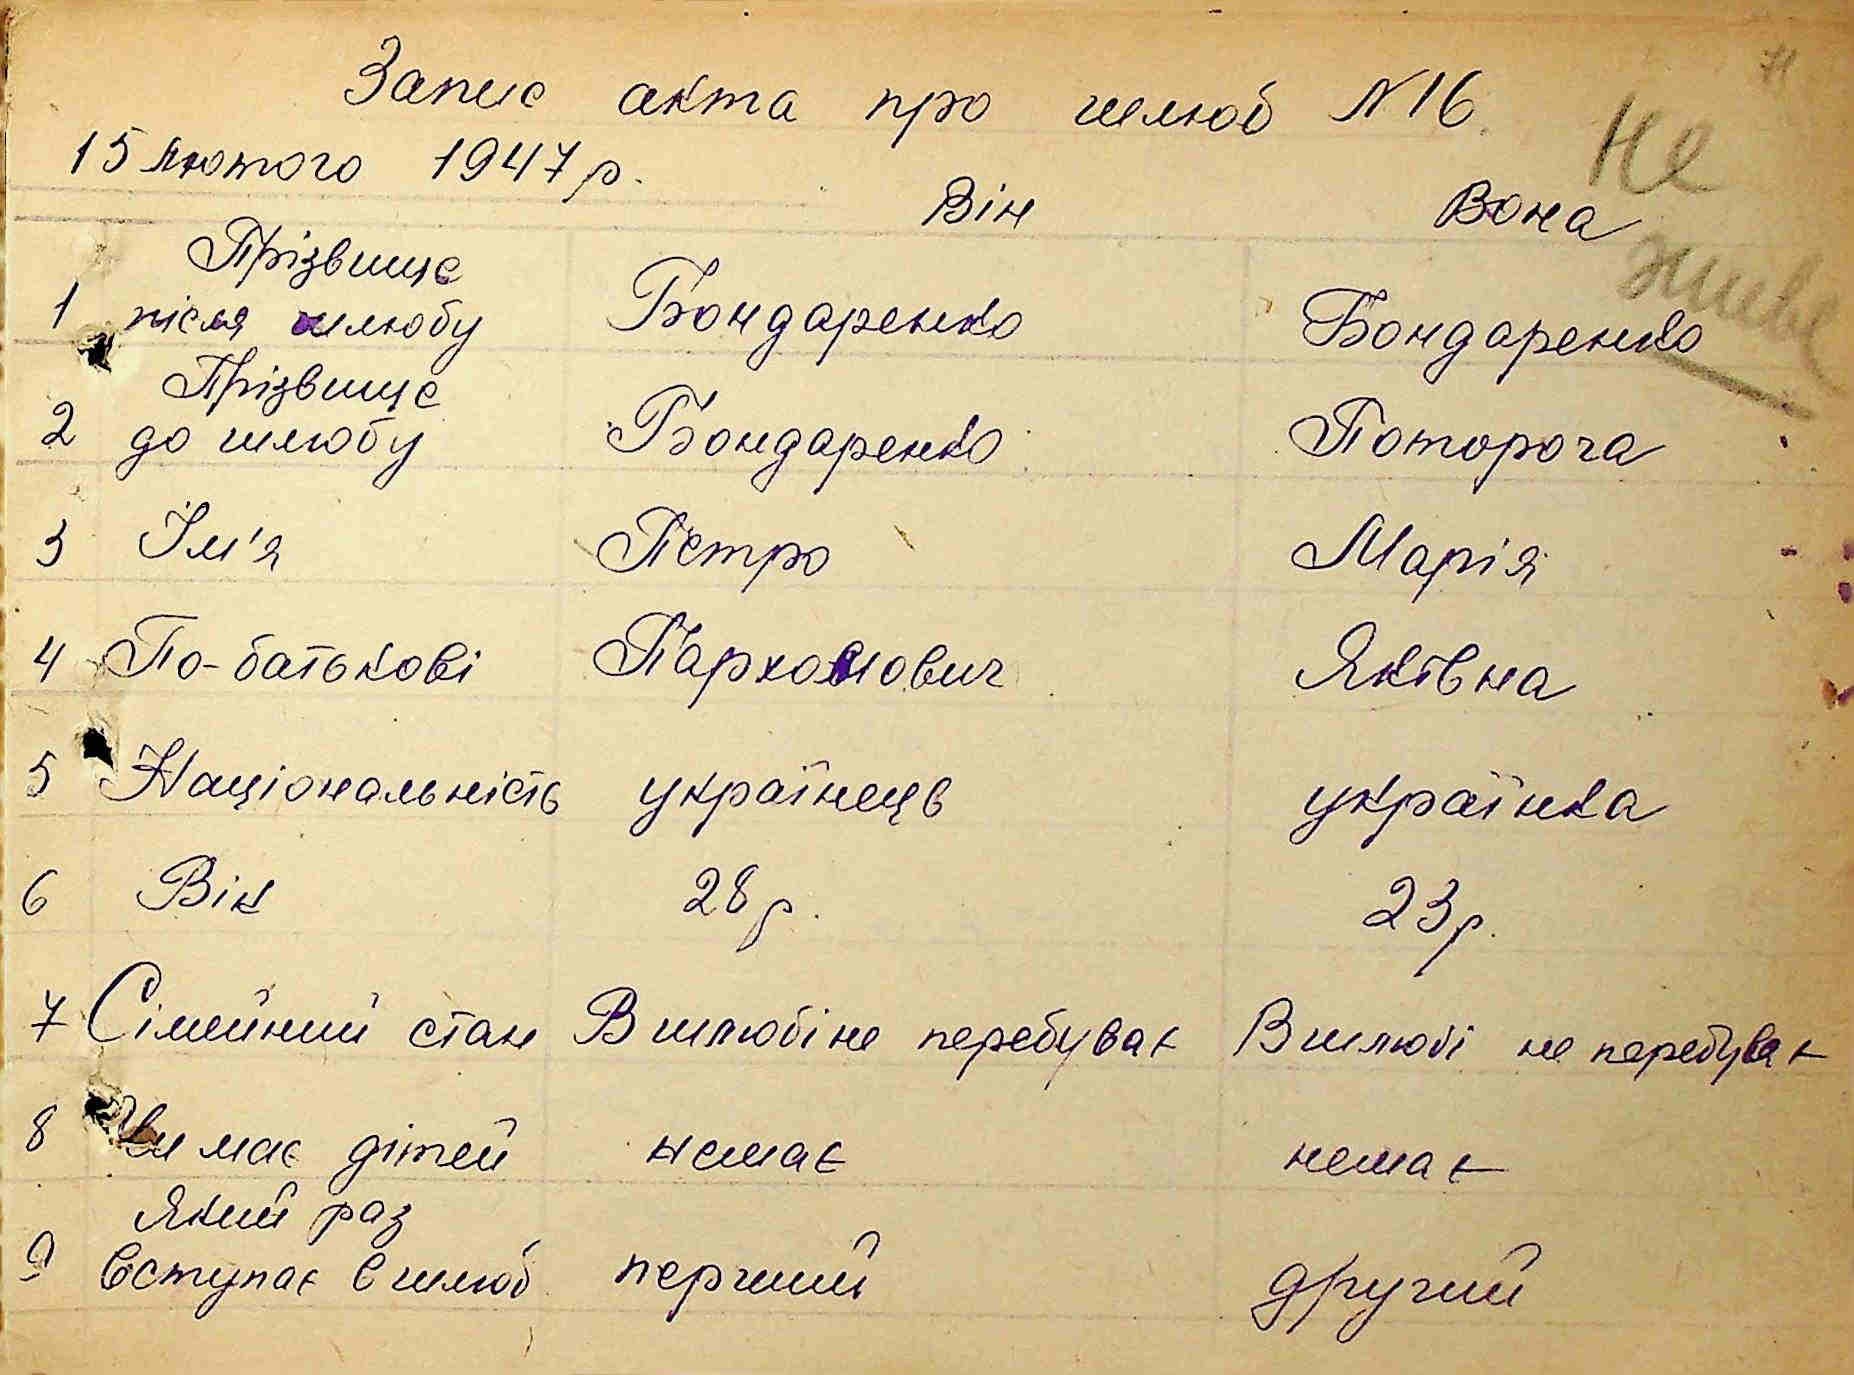 11
Запис акта про шлюб №16.
15 лютого 1947 р.
Не живе
Він Вона
Прізвище
1 після шлюбу Бондаренко Бондаренко
Прізвище
2 до шлюбу Бондаренко Поторочa
3 Ім'я Петро Марія
4 По-батькові Пархомович Яківна
5 Національність українець українка
6 Вік 28 р. 23 р.
7 Сімейний стан В шлюбі не перебуває В шлюбі не перебуває
8 Чи має дітей немає немає
Який раз
9 вступає в шлюб перший другий